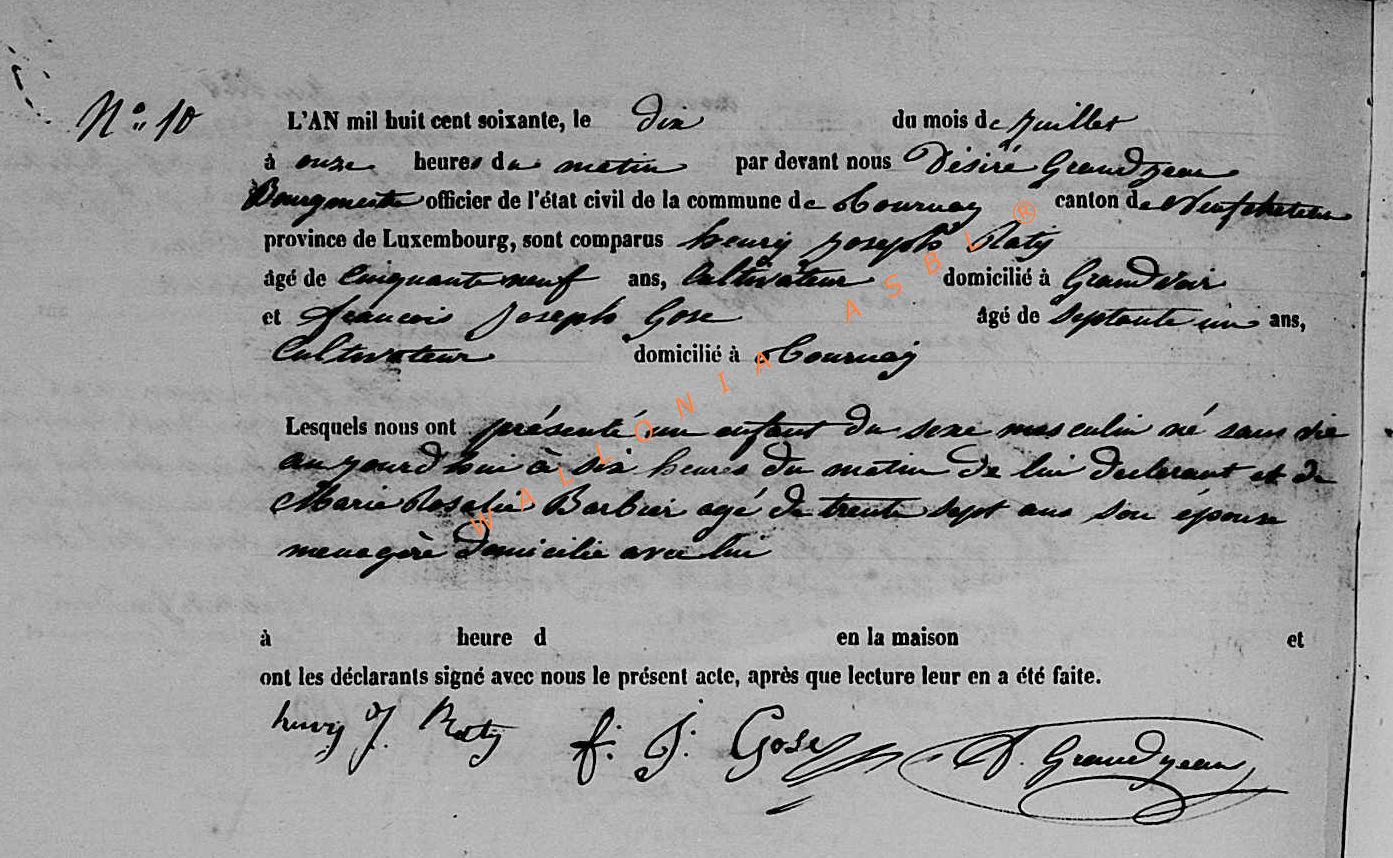 N° 10
L'AN mil huit cent soixante, le dix du mois de juillet
à onze heures du matin par devant nous Désiré Grandjean
Bourgmestre officier de l'état civil de la commune de Tournay canton de Neufchateau
province de Luxembourg, sont comparus henry Joseph Raty
âgé de Cinquante neuf ans, Cultivateur domicilié à Grandvoir
et francois Joseph Gose âgé de Septante un ans,
Cultivateur domicilié à Tournay
Lesquels nous ont présenté un enfant du sexe masculin né sans vie
aujourdhui à six heures du matin de lui declarant et de
Marie Rosalie Barbier agé de trente sept ans son épouse
menagère domicilie avec lui
à heure d en la maison et
ont les déclarants signé avec nous le présent acte, après que lecture leur en a été faite.
henry J. Raty f. J. Gose D. Grandjean
WALLONIA ASBL ®